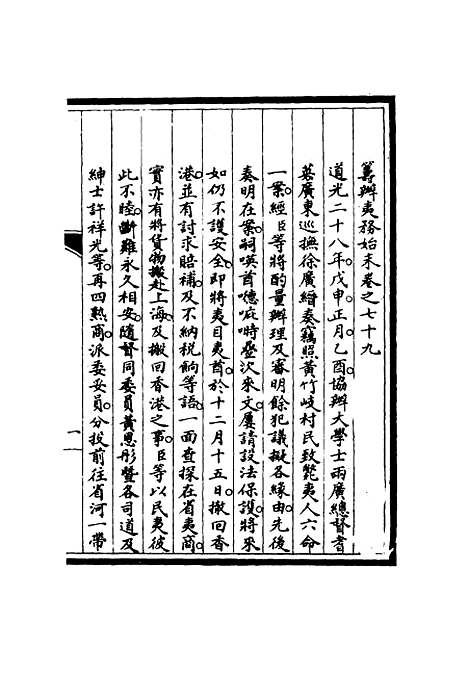 籌辦夷務始末卷之七十九
道光二十八年戊申正月乙酉協辦大學士兩廣總督耆
英廣東巡撫徐廣縉奏竊照黃竹岐村民致斃夷人六命
一案經臣等將酌量辦理及審明餘犯議擬各緣由先後
奏明在案詞嘆酋噫㕸㗔疊次來文屢請設法保護將來
如仍不護安全即將夷目夷酋於十二月十五日撤回香
港並有討求賠補及不納稅餉等語一面查探在省夷商
實亦有將貨物搬赴上海及搬回香港之事臣等以民夷彼
此不睦斷難永久相安隨督同委員黃恩彤暨各司道及
紳士許祥光等再四熟商派委妥員分投前往省河一帶
一